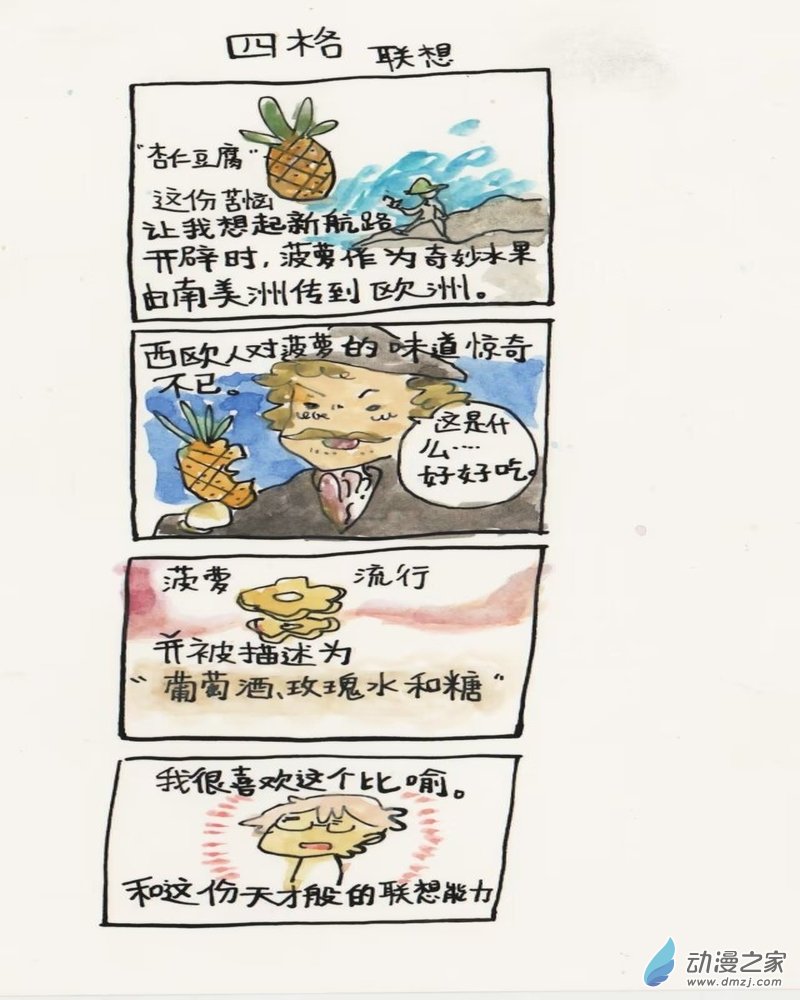 四格 联想
"杏仁豆腐"
这份苦恼
让我想起新航路
开辟时，菠萝作为奇妙水果
由南美洲传到欧洲。
西欧人对菠萝的味道惊奇
不已。
这是什
么……
好好吃。
菠萝 流行
并被描述为
"葡萄酒、玫瑰水和糖"
我很喜欢这个比喻。
和这份天才般的联想能力
动漫之家
www.dmzj.com